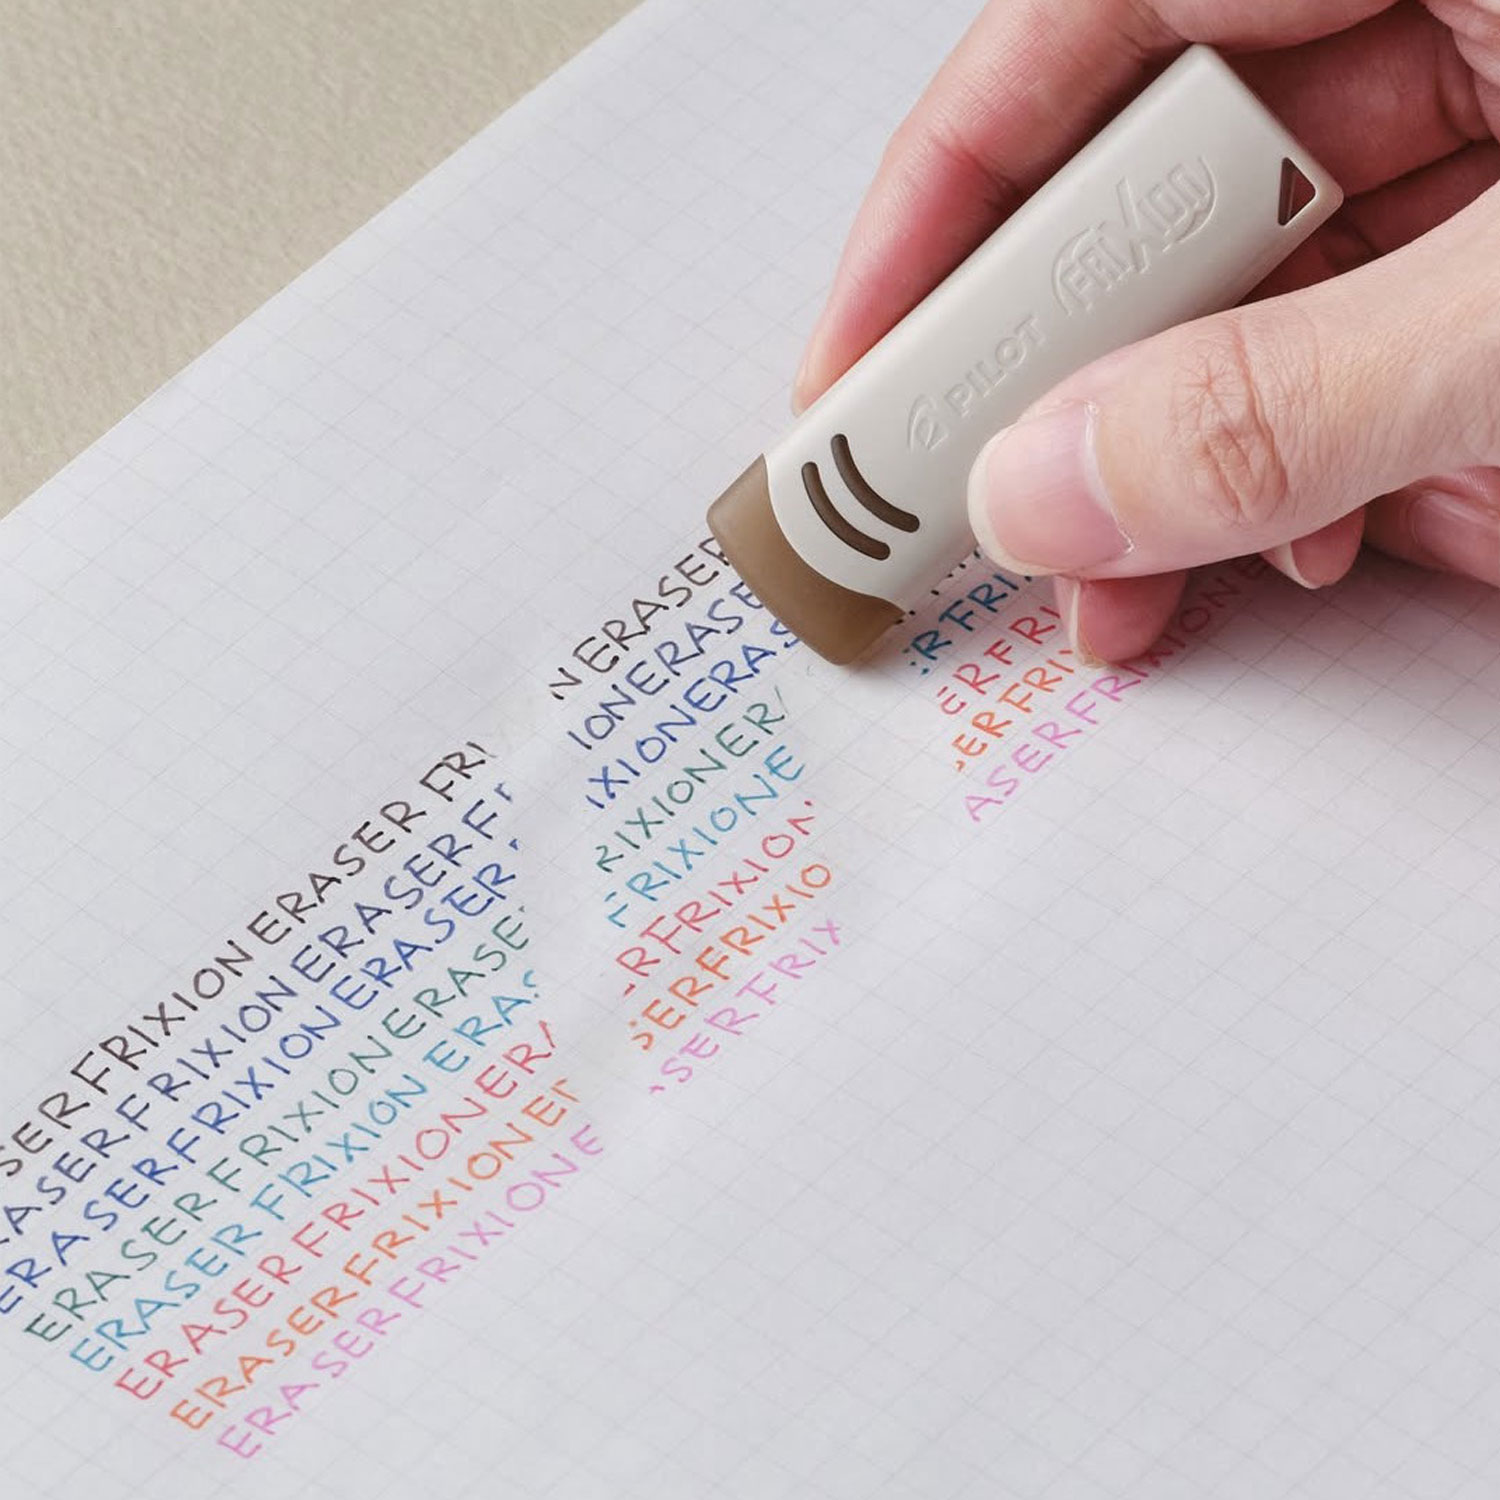 PILOT FRIXION
SER FRIXION ERASER FRI N ERASER
ASER FRIXION ERASER F IONERASE
ERASERFRIXIONERASER IXIONERAS
ERASER FRIXIONERASE RIXIONER
ERASER FRIXION ERAS FRIXIONE ER FRI
ERASERFRIXIONERA RFRIXION ERFRI
ERASERFRIXIONE SERFRIXIO ERFRIX
ERASERFRIXIONE SERFRIX ASERFRIXIONE